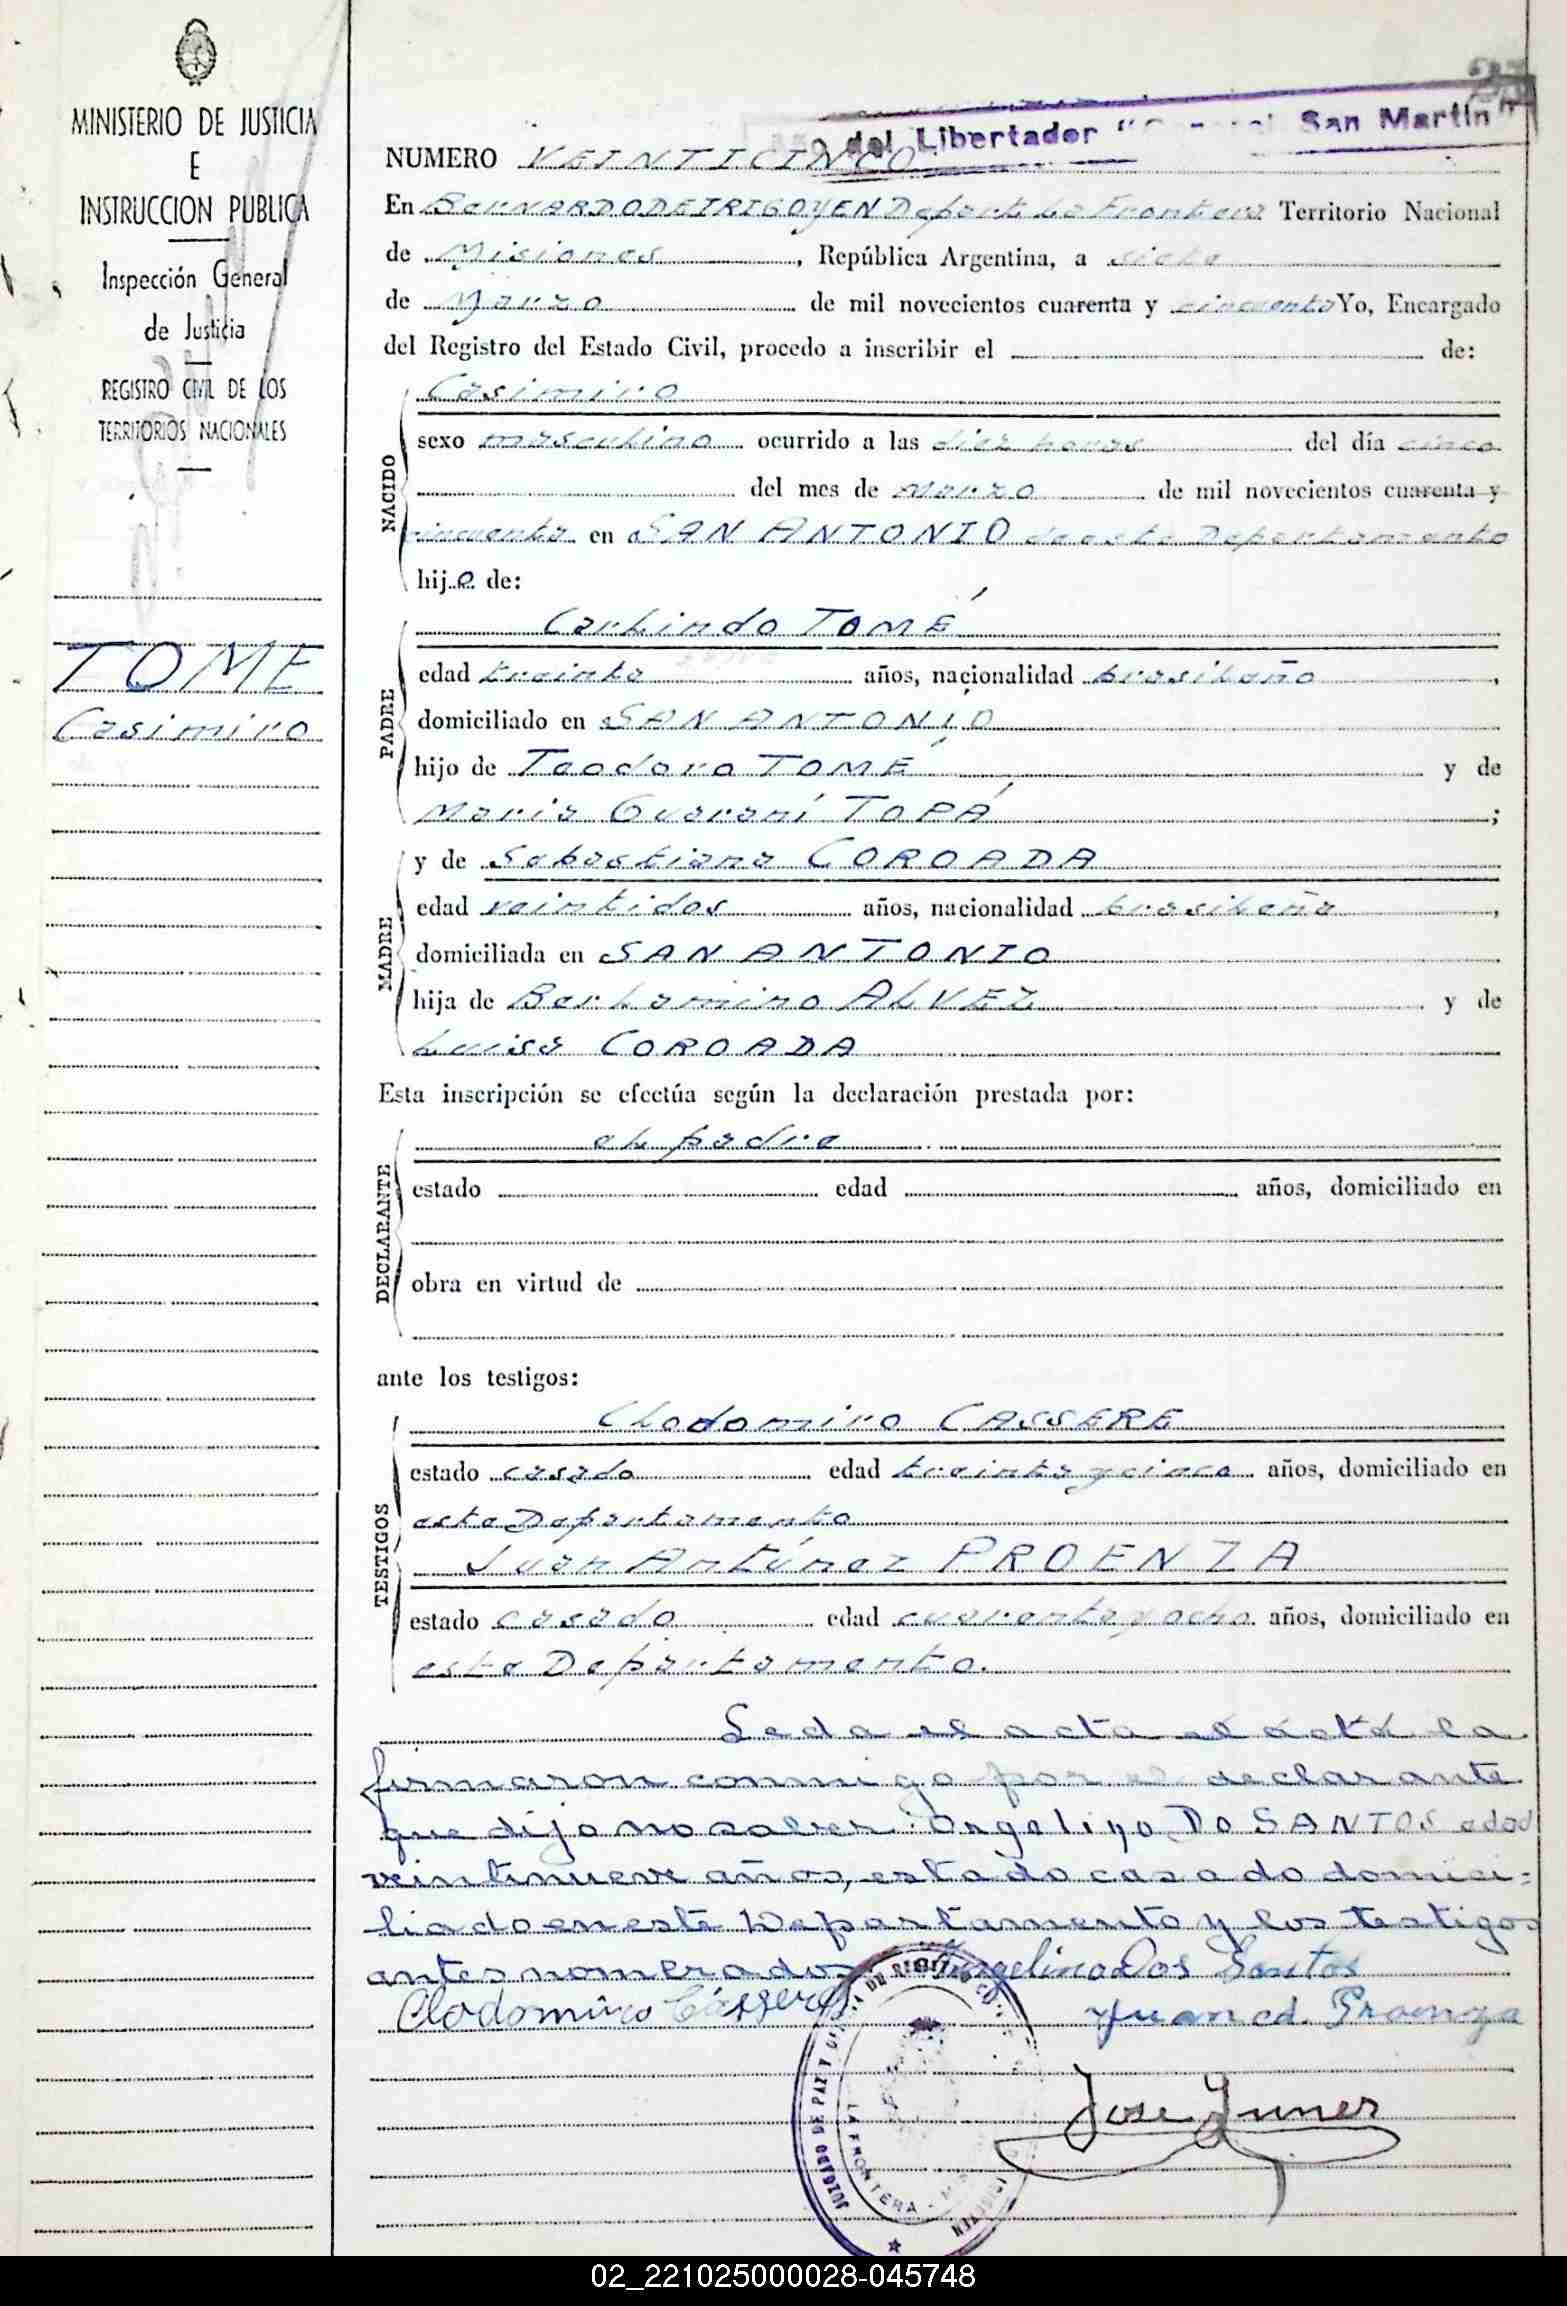 MINISTERIO DE JUSTICIA
E
INSTRUCCION PUBLICA
Inspección General
de Justicia
REGISTRO CIVIL DE LOS
TERRITORIOS NACIONALES
TOME
Casimiro
del Libertador "General San Martin"
NUMERO VEINTICINCO
En BERNARDO DE IRIGOYEN Depart. La Frontera Territorio Nacional
de Misiones, República Argentina, a siete
de Marzo de mil novecientos cuarenta y cincuenta Yo, Encargado
del Registro del Estado Civil, procedo a inscribir el de:
NACIDO
Casimiro
sexo masculino ocurrido a las diez horas del día cinco
del mes de Marzo de mil novecientos cuarenta y
cincuenta en SAN ANTONIO de este Departamento
hijo de:
PADRE
Carlindo TOMÉ
edad treinta años, nacionalidad brasileño,
domiciliado en SAN ANTONIO
hijo de Teodoro TOMÉ y de
Maria Guaraní TOPÁ;
MADRE
y de Sebastiana COROADA
edad veintidos años, nacionalidad brasileña,
domiciliada en SAN ANTONIO
hija de Berlamino ALVEZ y de
Luisa COROADA
Esta inscripción se efectúa según la declaración prestada por:
DECLARANTE
el padre
estado edad años, domiciliado en
obra en virtud de
ante los testigos:
TESTIGOS
Clodomiro CASSERE
estado casado edad treinta y cinco años, domiciliado en
este Departamento
Juan Antúnez PROENZA
estado casado edad cuarenta y ocho años, domiciliado en
este Departamento.
Leda el acta la
firmaron conmigo por el declarante
que dijo no saber Angelino DO SANTOS edad
veintinueve años, estado casado domici=
liado en este Departamento y los testigos
antes nomerados Angelino Dos Santos
Clodomiro Cassere Juan A. Proenza
José
JUZGADO DE PAZ Y OFICINA DE REGISTRO
LA FRONTERA - MISIONES
02_221025000028-045748